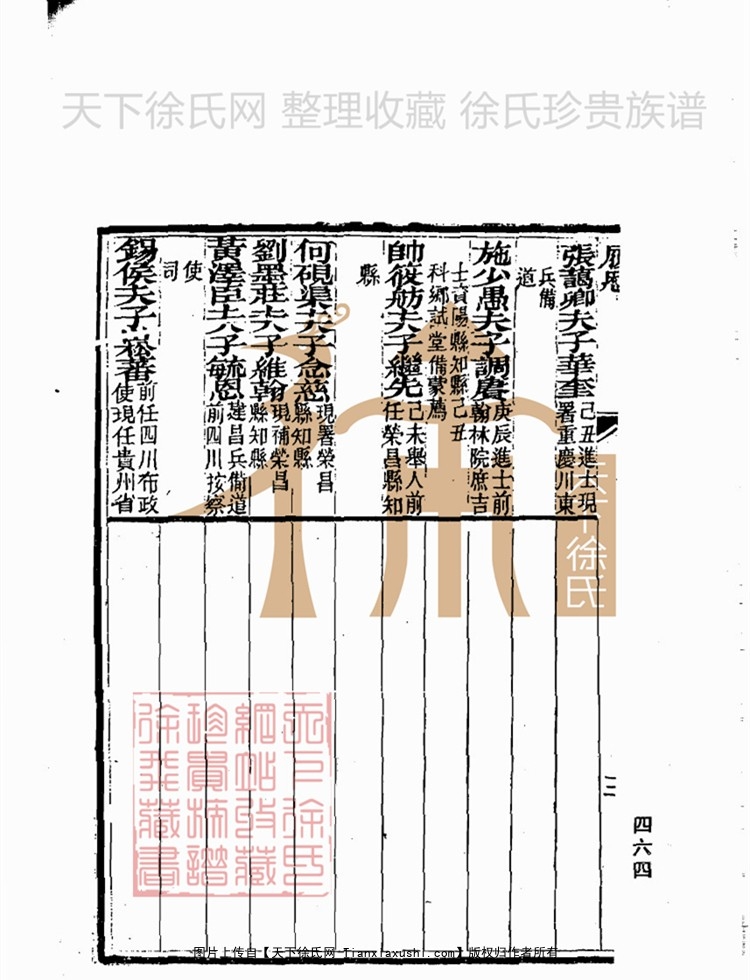 天下徐氏网 整理收藏 徐氏珍贵族谱
張藹卿夫子華奎己丑進士現署重慶川東
兵備
道
施少愚夫子調賡庚辰進士前翰林院庶吉
士資陽縣知縣己丑科鄉試堂備蒙薦
帥筱舫夫子繼先己未舉人前任榮昌縣知
縣
何硯渠夫子念慈現署榮昌縣知縣
劉墨莊夫子維翰現補榮昌縣知縣
黃澤臣夫子毓恩建昌兵備道前四川按察
使
司
錫侯夫子崧蕃前任四川布政使現任貴州省
三
四六四
天下徐氏
天下徐氏網站收藏珍貴族譜徐氏藏書
图片上传自【天下徐氏网 Tianxiaxushi.com】版权归作者所有